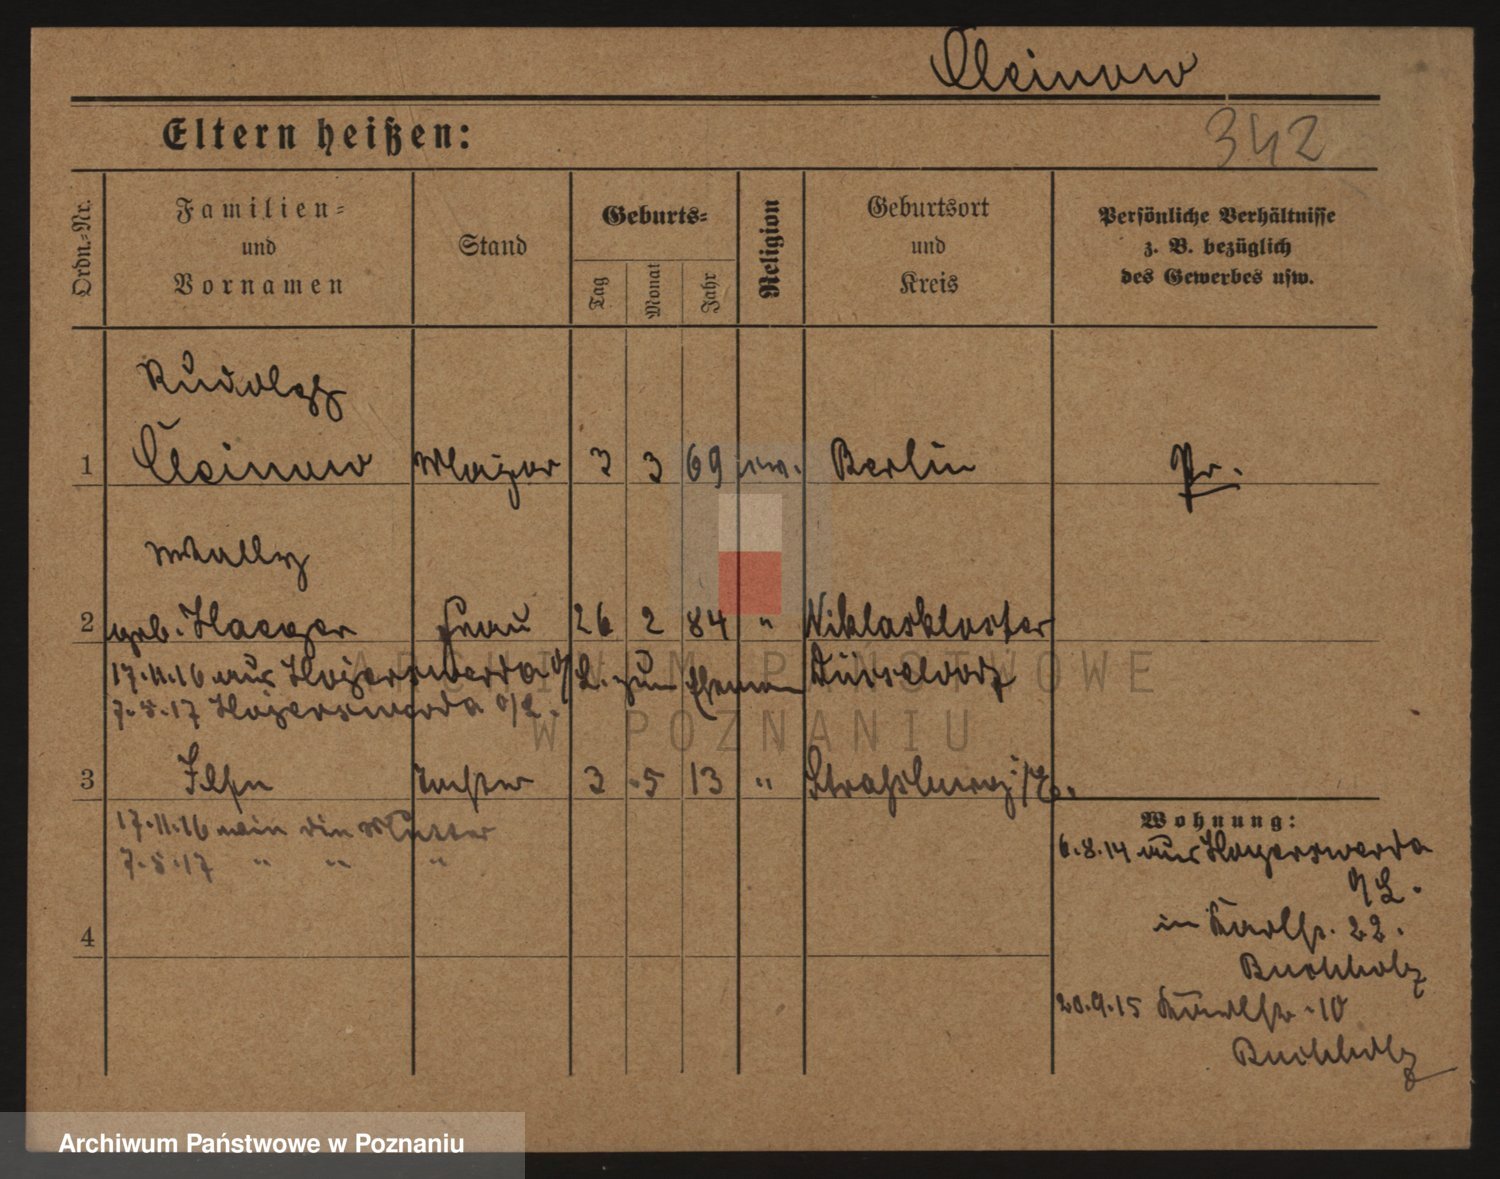 Cleinow
342
Eltern heißen:
Ordn.-Nr.
Familien-
und
Vornamen
Stand
Geburts-
Tag
Monat
Jahr
Religion
Geburtsort
und
Kreis
Persönliche Verhältnisse
z. B. bezüglich
des Gewerbes usw.
Rudolf
1 Cleinow Major 3 3 69 ev. Berlin Pr.
Wally
2 geb. Haeger Frau 26 2 84 " Niklaskloster
17.11.16 aus Hoyerswerda O/L. zum Eheman Düsseldorf
7.5.17 Hoyerswerda O/L.
3 Ilse Tochter 3 5 13 " Straßburg i/E.
17.11.16 wie die Mutter
7.5.17 " " "
4
Wohnung:
6.8.14 aus Hoyerswerda
O/L.
in Karlstr. 22.
Buchholz
20.9.15 10
Buchholz
ARCHIWUM PAŃSTWOWE
W POZNANIU
Archiwum Państwowe w Poznaniu